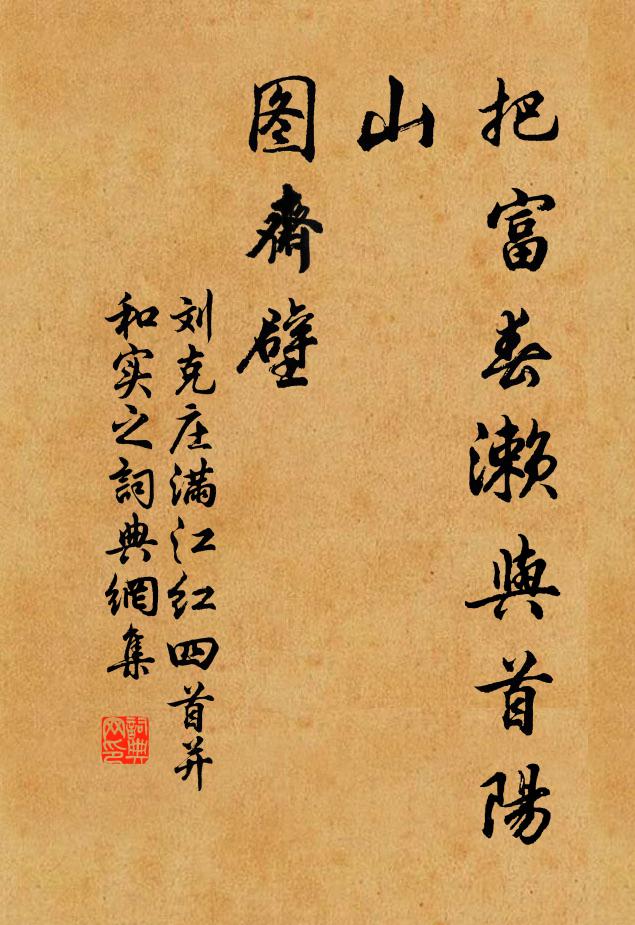 把富春濑與首陽
山
图齋壁
刘克庄满江红四首并
和实之詞典網集
詞典网印